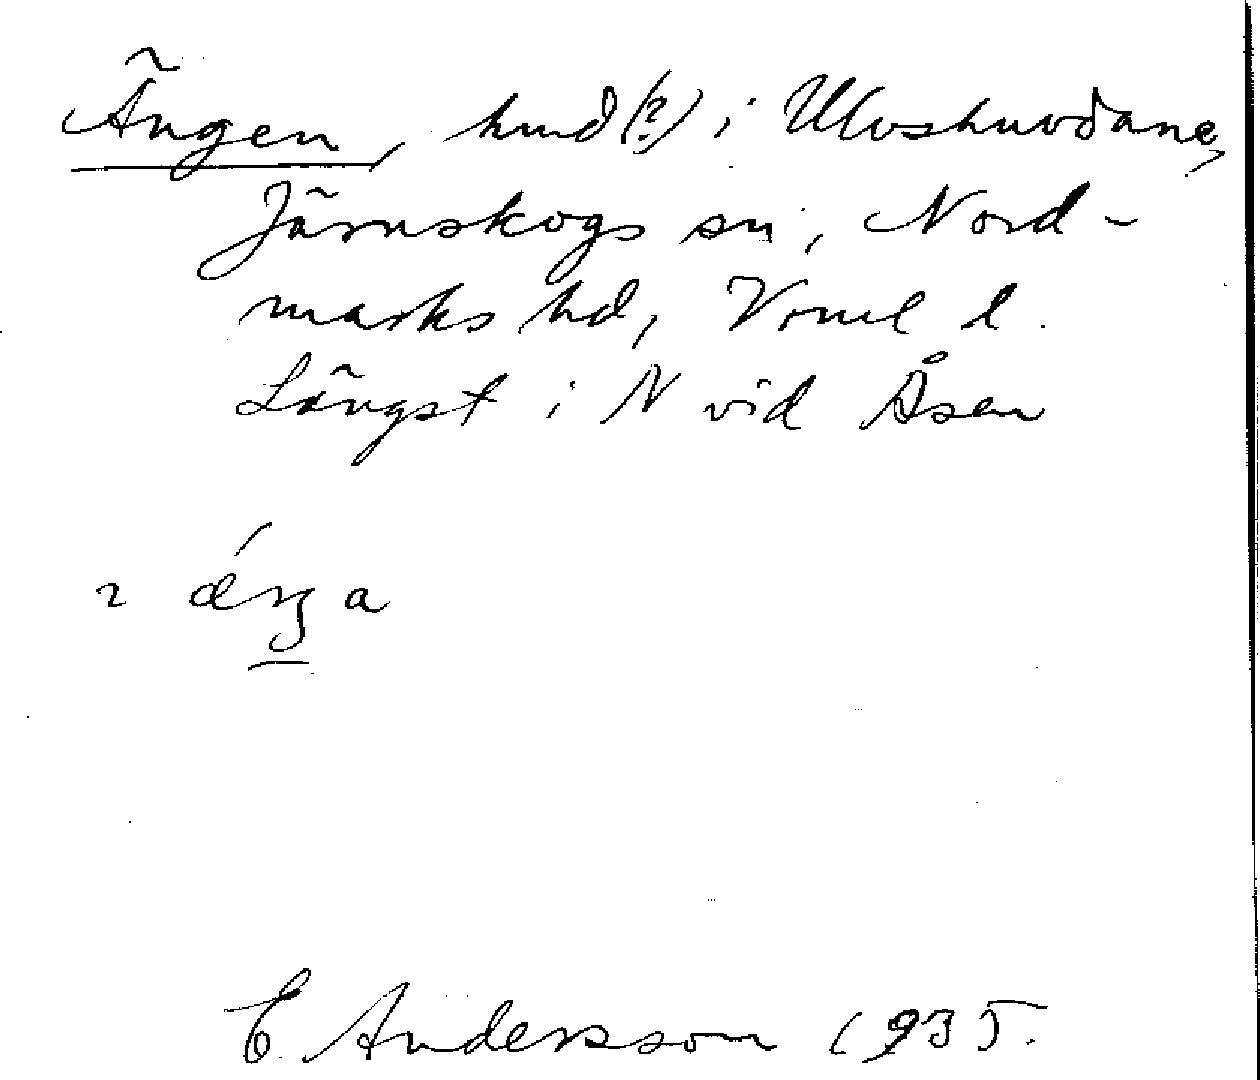 Ängen, hmd(?) i Ulvshuvdane,
Järnskogs sn, Nord-
marks hd, Vrml l.
Längst i N vid Åsen
E. Andersson 1935.